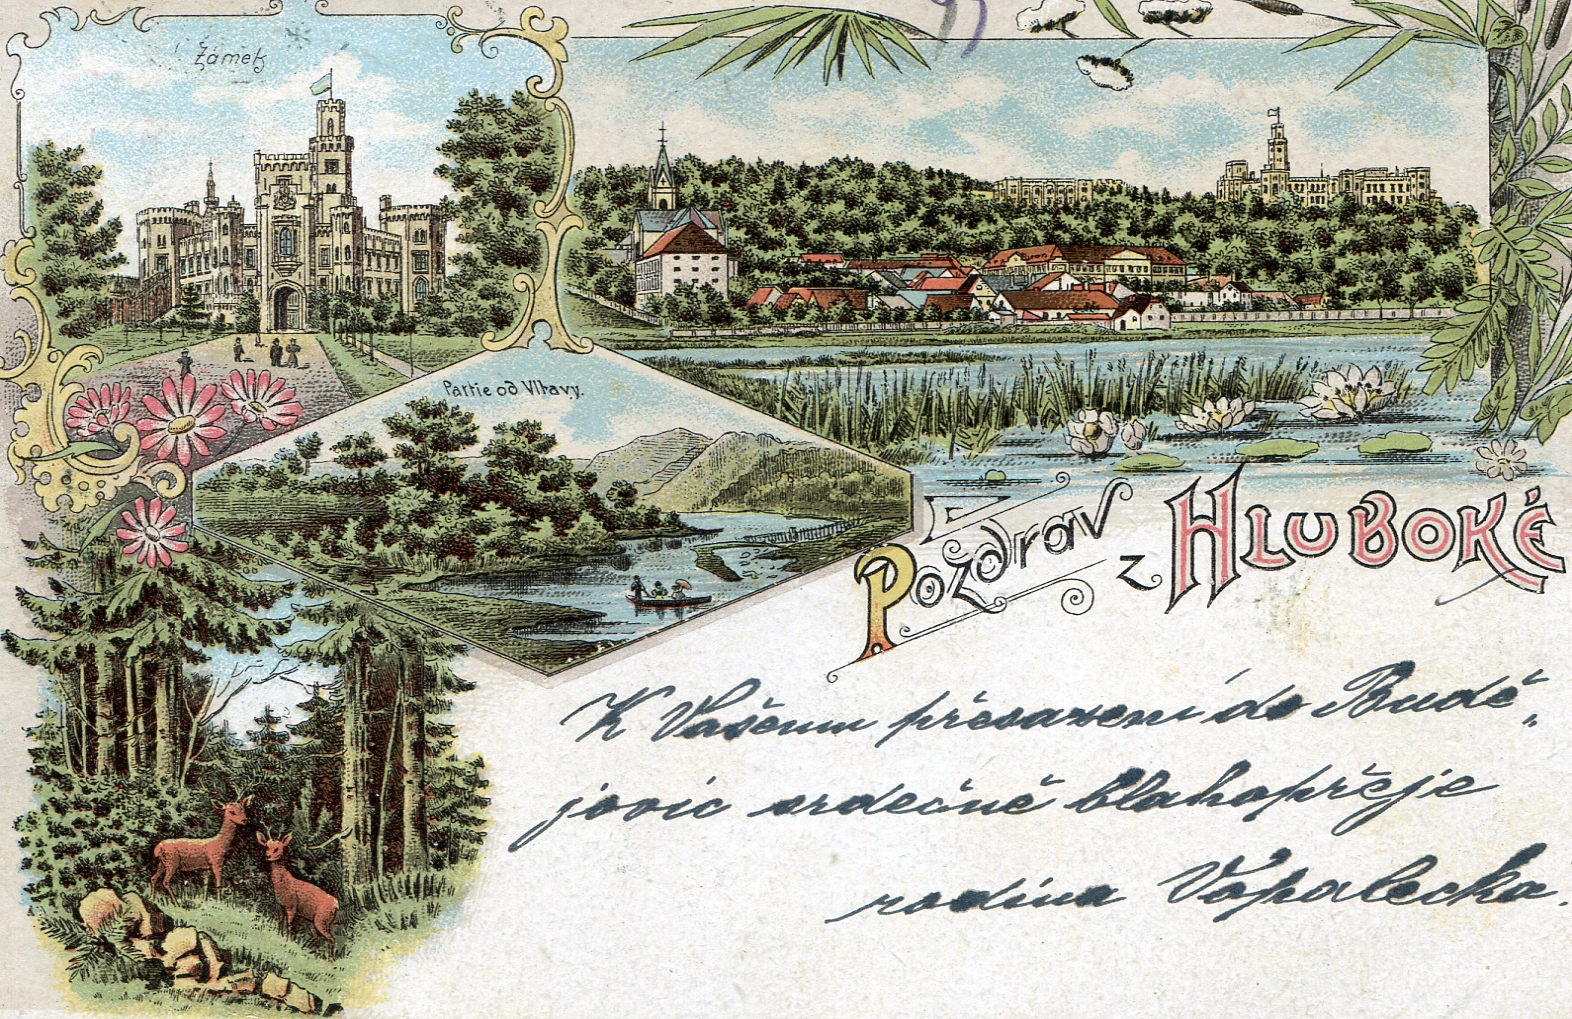 Zámek
Partie od Vltavy.
Pozdrav z HLUBOKÉ
K Vašemu přesazení do Budě„
jovic srdečně blahopřeje
rodina Vápalecka.